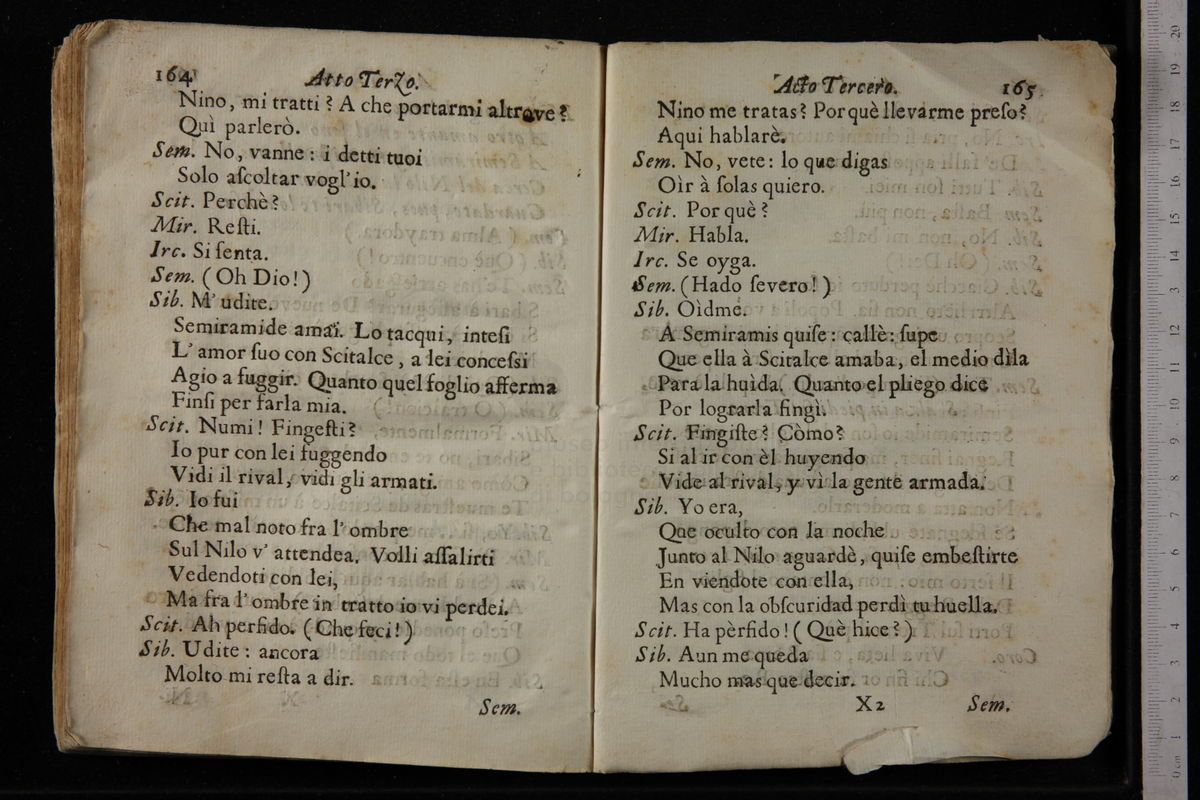 164 Atto Terzo.
Nino, mi tratti? A che portarmi altrove?
Quì parlerò.
Sem. No, vanne: i detti tuoi
Solo aſcoltar vogl'io.
Scit. Perchè?
Mir. Reſti.
Irc. Si ſenta.
Sem. (Oh Dio!)
Sib. M'udite.
Semiramide amai. Lo tacqui, inteſi
L'amor ſuo con Scitalce, a lei conceſſi
Agio a fuggir. Quanto quel foglio afferma
Finſi per farla mia.
Scit. Numi! Fingeſti?
Io pur con lei fuggendo
Vidi il rival, vidi gli armati.
Sib. Io fui
Che mal noto fra l'ombre
Sul Nilo v'attendea. Volli aſſalirti
Vedendoti con lei,
Ma fra l'ombre in tratto io vi perdei.
Scit. Ah perfido. (Che feci!)
Sib. Udite: ancora
Molto mi reſta a dir.
Sem.
Acto Tercero. 165
Nino me tratas? Por què llevarme preſo?
Aqui hablarè.
Sem. No, vete: lo que digas
Oìr à ſolas quiero.
Scit. Por què?
Mir. Habla.
Irc. Se oyga.
Sem. (Hado ſevero!)
Sib. Oìdme.
A Semiramis quiſe: callè: ſupe
Que ella à Scitalce amaba, el medio dìla
Para la huìda. Quanto el pliego dice
Por lograrla fingì.
Scit. Fingiſte? Còmo?
Si al ir con èl huyendo
Vide al rival, y vì la gente armada.
Sib. Yo era,
Que oculto con la noche
Junto al Nilo aguardè, quiſe embeſtirte
En viendote con ella,
Mas con la obſcuridad perdì tu huella.
Scit. Ha pèrfido! (Què hice?)
Sib. Aun me queda
Mucho mas que decir.
X2 Sem.